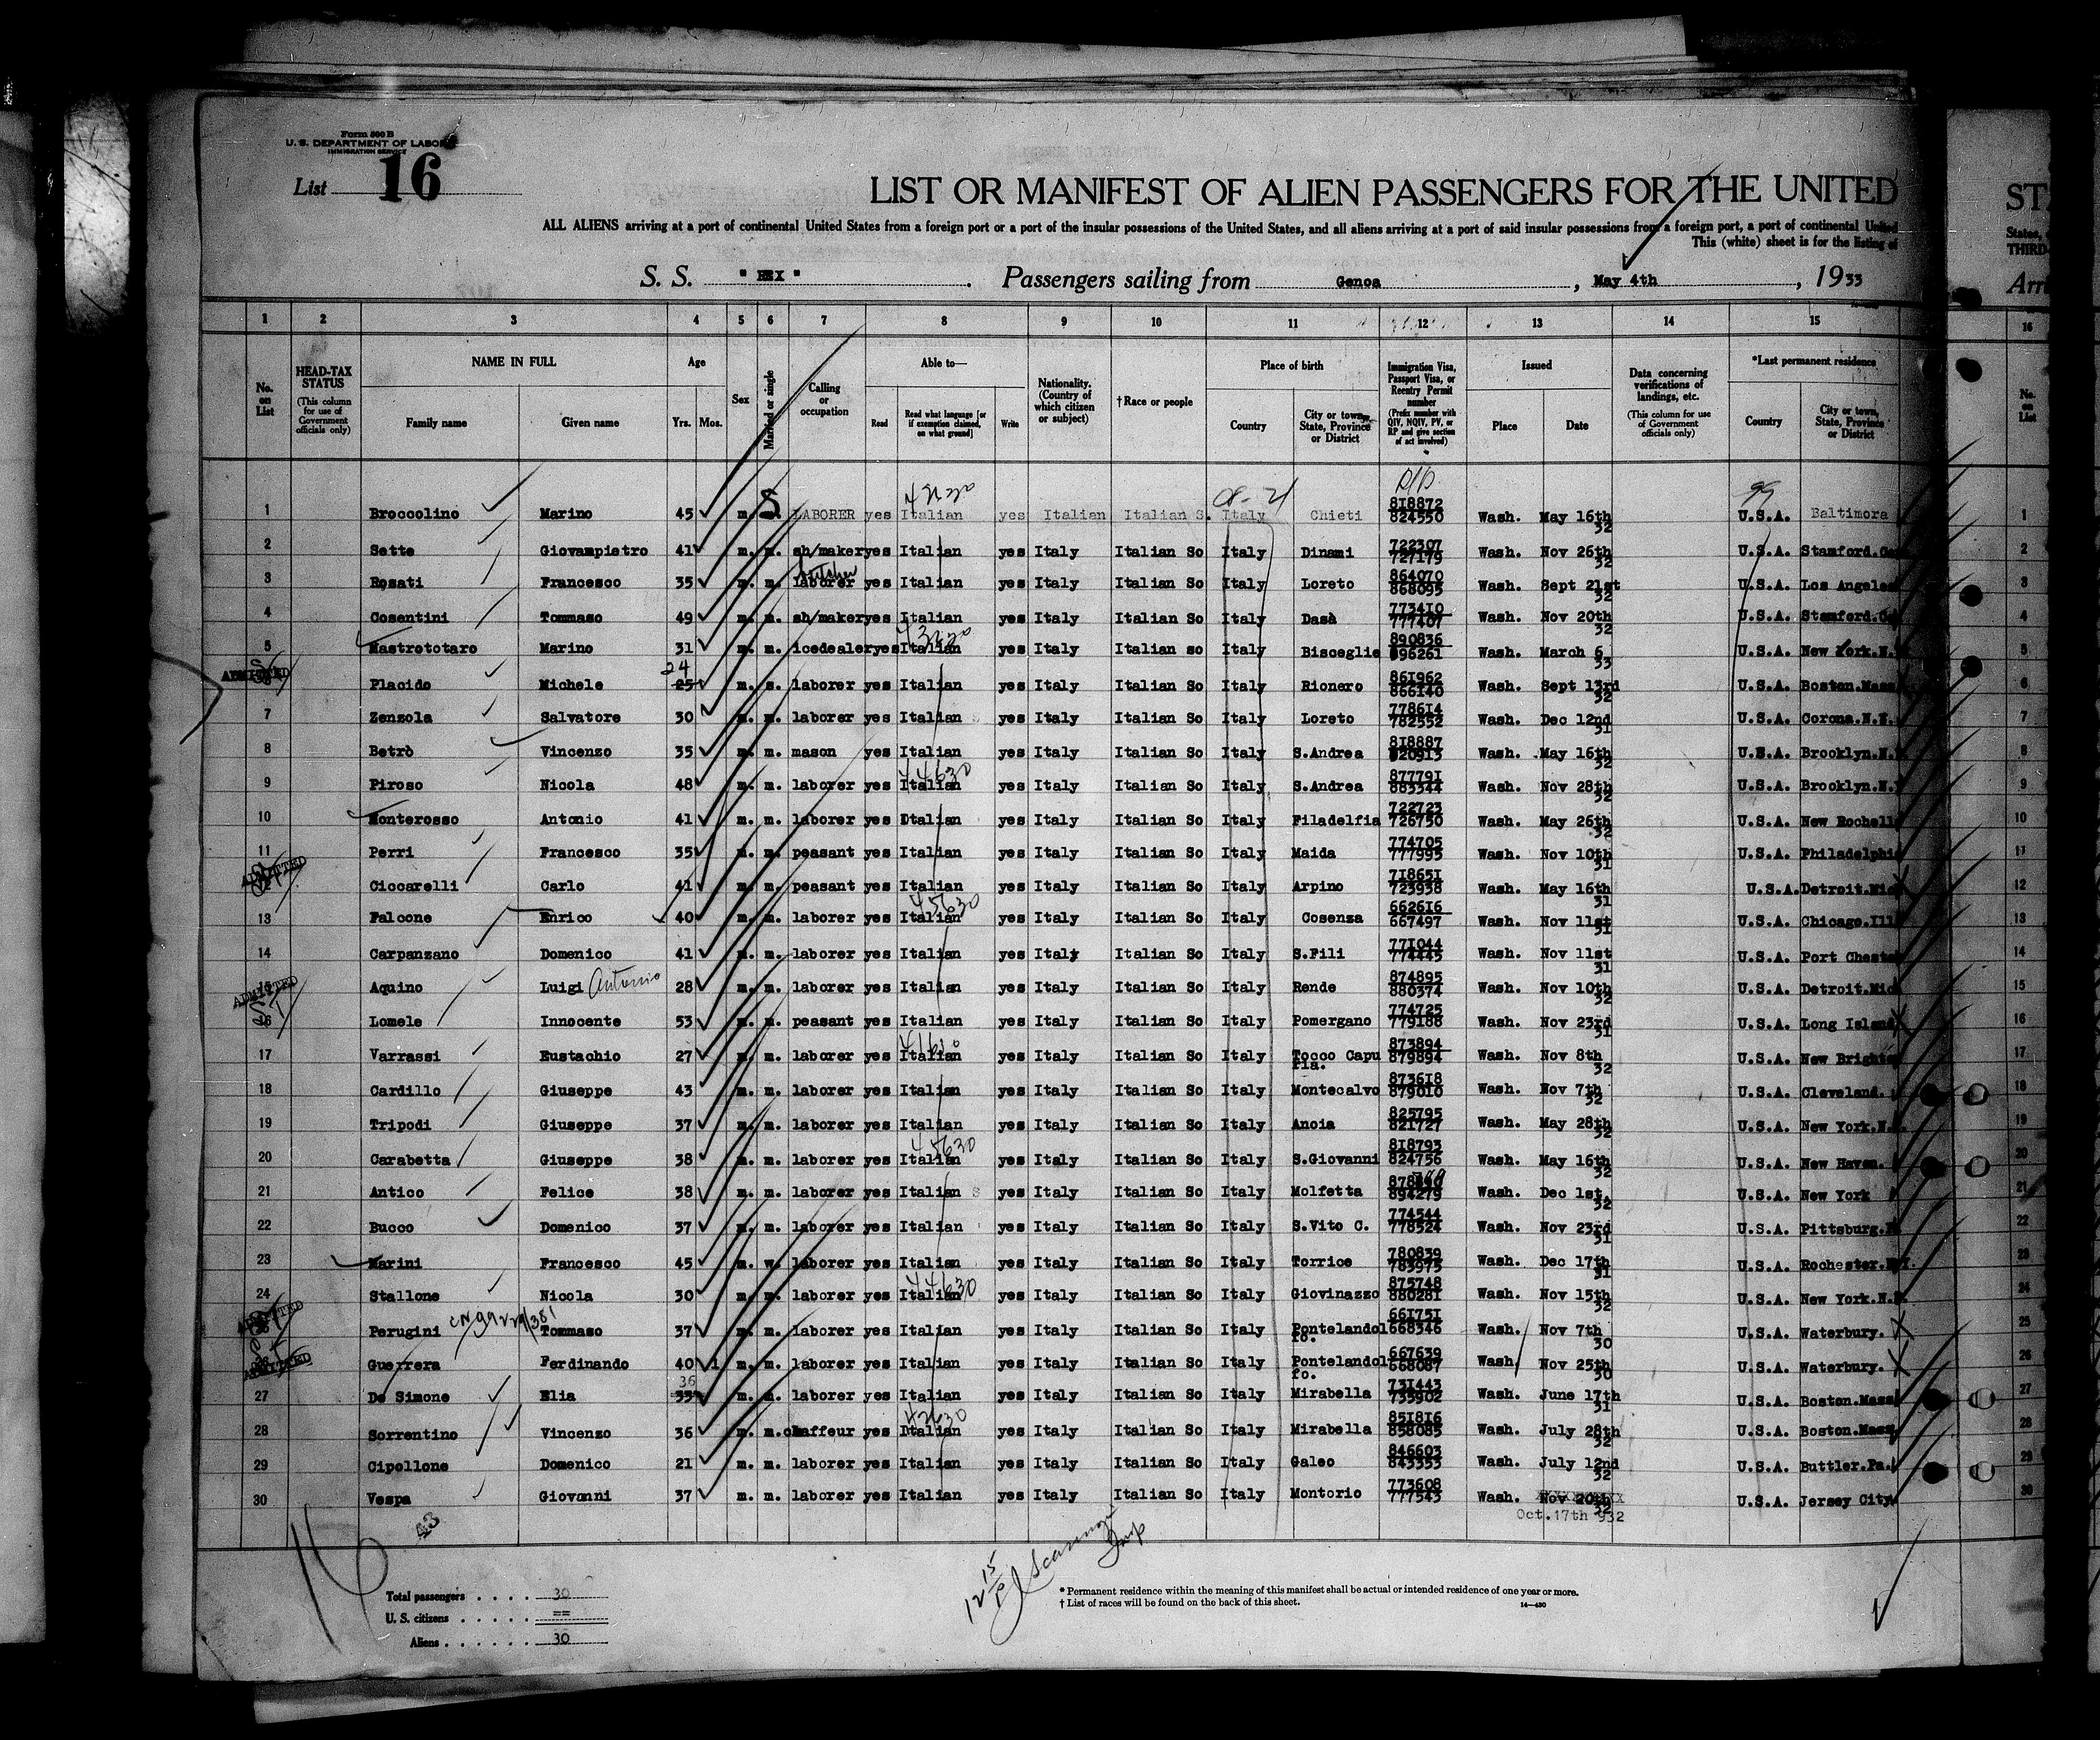 Form 500 B
U. S. DEPARTMENT OF LABOR
IMMIGRATION SERVICE
List 16
LIST OR MANIFEST OF ALIEN PASSENGERS FOR THE UNITED
ALL ALIENS arriving at a port of continental United States from a foreign port or a port of the insular possessions of the United States, and all aliens arriving at a port of said insular possessions from a foreign port, a port of continental United
This (white) sheet is for the listing of
S. S. " REX " . Passengers sailing from Genoa , May 4th , 1933
1 2 3 4 5 6 7 8 9 10 11 12 13 14 15
No. on List HEAD-TAX STATUS (This column for use of Government officials only) NAME IN FULL Family name Given name Age Yrs. Mos. Sex Married or single Calling or occupation Able to— Read Read what language [or if exemption claimed, on what ground] Write Nationality. (Country of which citizen or subject) † Race or people Place of birth Country City or town, State, Province or District Immigration Visa, Passport Visa, or Reentry Permit number (Prefix number with QIV, NQIV, PV, or RP and give section of act involved) Issued Place Date Data concerning verifications of landings, etc. (This column for use of Government officials only) *Last permanent residence Country City or town, State, Province or District
1 Broccolino Marino 45 m. S LABORER yes Italian yes Italian Italian S. Italy Chieti 818872 824550 Wash. May 16th 32 U.S.A. Baltimora
2 Sette Giovampietro 41 m. m. sh/maker yes Italian yes Italy Italian So Italy Dinami 722307 727179 Wash. Nov 26th 32 U.S.A. Stamford.
3 Rosati Francesco 35 m. m. laborer butcher yes Italian yes Italy Italian So Italy Loreto 864070 868095 Wash. Sept 21st 32 U.S.A. Los Angeles
4 Cosentini Tommaso 49 m. m. sh/maker yes Italian yes Italy Italian So Italy Dasà 773410 777407 Wash. Nov 20th 32 U.S.A. Stamford.
5 Mastrototaro Marino 31 m. m. icedealer yes Italian yes Italy Italian so Italy Bisceglie 890836 896261 Wash. March 6 33 U.S.A. New York.N.
ADMITTED Placido Michele 24 25 m. s. laborer yes Italian yes Italy Italian So Italy Rionero 861962 866140 Wash. Sept 13rd 32 U.S.A. Boston.Mass
7 Zenzola Salvatore 30 m. m. laborer yes Italian yes Italy Italian So Italy Loreto 778614 782552 Wash. Dec 12nd 31 U.S.A. Corona.N.Y.
8 Betrò Vincenzo 35 m. m. mason yes Italian yes Italy Italian So Italy S.Andrea 818887 820913 Wash. May 16th 32 U.S.A. Brooklyn.N.
9 Piroso Nicola 48 m. m. laborer yes Italian yes Italy Italian So Italy S.Andrea 877791 883344 Wash. Nov 28th 32 U.S.A. Brooklyn.N.
10 Monterosso Antonio 41 m. m. laborer yes Dtalian yes Italy Italian So Italy Filadelfia 722723 726750 Wash. May 26th 32 U.S.A. New Rochell
11 Perri Francesco 35 m. m. peasant yes Italian yes Italy Italian So Italy Maida 774705 777995 Wash. Nov 10th 31 U.S.A. Philadelphi
ADMITTED Ciccarelli Carlo 41 m. m. peasant yes Italian yes Italy Italian So Italy Arpino 718651 723938 Wash. May 16th 31 U.S.A. Detroit.Mic
13 Falcone Enrico 40 m. m. laborer yes Italian yes Italy Italian So Italy Cosenza 662616 667497 Wash. Nov 11st 31 U.S.A. Chicago.Ill
14 Carpanzano Domenico 41 m. m. laborer yes Italian yes Italy Italian So Italy S.Fili 771044 774445 Wash. Nov 11st 31 U.S.A. Port Cheste
ADMITTED Aquino Luigi Antonio 28 m. m. laborer yes Italian yes Italy Italian So Italy Rende 874895 880374 Wash. Nov 10th 32 U.S.A. Detroit.Mic
16 Lomele Innocente 53 m. m. peasant yes Italian yes Italy Italian So Italy Pomergano 774725 779188 Wash. Nov 23rd 31 U.S.A. Long Island
17 Varrassi Eustachio 27 m. m. laborer yes Italian yes Italy Italian So Italy Tocco Capu ria. 873894 879894 Wash. Nov 8th 32 U.S.A. New Brigh
18 Cardillo Giuseppe 43 m. m. laborer yes Italian yes Italy Italian So Italy Montecalvo 873618 879010 Wash. Nov 7th 32 U.S.A. Cleveland.
19 Tripodi Giuseppe 37 m. m. laborer yes Italian yes Italy Italian So Italy Anoia 825795 821727 Wash. May 28th 32 U.S.A. New York.N.
20 Carabetta Giuseppe 38 m. m. laborer yes Italian yes Italy Italian So Italy S.Giovanni 818793 824756 Wash. May 16th 32 U.S.A. New Haven.
21 Antico Felice 38 m. m. laborer yes Italian yes Italy Italian So Italy Molfetta 894279 Wash. Dec 1st. 32 U.S.A. New York
22 Bucco Domenico 37 m. m. laborer yes Italian yes Italy Italian So Italy S.Vito C. 774544 778524 Wash. Nov 23rd 31 U.S.A. Pittsburg.
23 Marini Francesco 45 m. w. laborer yes Italian yes Italy Italian So Italy Torrice 780839 783975 Wash. Dec 17th 31 U.S.A. Rochester.N.Y.
24 Stallone Nicola 30 m. m. laborer yes Italian yes Italy Italian So Italy Giovinazzo 875748 880281 Wash. Nov 15th 32 U.S.A. New York.N.
ADMITTED Perugini Tommaso 37 m. m. laborer yes Italian yes Italy Italian So Italy Pontelandol fo. 661751 668346 Wash. Nov 7th 30 U.S.A. Waterbury.
ADMITTED Guerrera Ferdinando 40 1 m. m. laborer yes Italian yes Italy Italian So Italy Pontelandol fo. 667639 668087 Wash. Nov 25th 30 U.S.A. Waterbury.
27 De Simone Elia 36 35 m. m. laborer yes Italian yes Italy Italian So Italy Mirabella 731443 735902 Wash. June 17th 31 U.S.A. Boston.Mass
28 Sorrentino Vincenzo 36 m. m. chaffeur yes Dtalian yes Italy Italian So Italy Mirabella 851816 858085 Wash. July 28th 32 U.S.A. Boston.Mass
29 Cipollone Domenico 21 m. m. laborer yes Italian yes Italy Italian So Italy Galeo 846603 843353 Wash. July 12nd 32 U.S.A. Buttler.Pa.
30 Vespa Giovanni 37 m. m. laborer yes Italian yes Italy Italian So Italy Montorio 773608 777543 Wash. Nov 20th 32 U.S.A. Jersey City
Oct.17th 932
16 43
Total passengers . . . . . 30
U. S. citizens . . . . . ==
Aliens . . . . . . 30
* Permanent residence within the meaning of this manifest shall be actual or intended residence of one year or more.
† List of races will be found on the back of this sheet.
14—430
STA
States,
THIRD-
Arri
16
No. on List
1
2
3
4
5
6
7
8
9
10
11
12
13
14
15
16
17
18
19
20
21
22
23
24
25
26
27
28
29
30